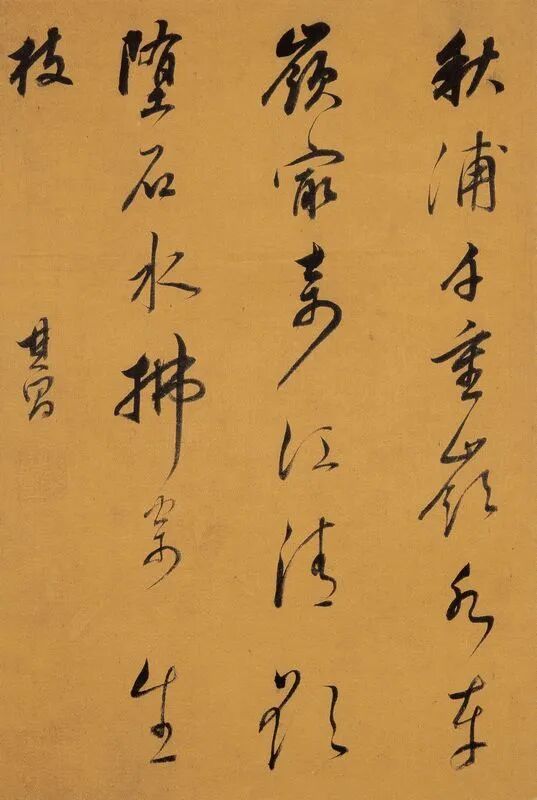 秋浦千重嶺水車
嶺最奇江清欲
墮石水拂寄生
枝
其昌